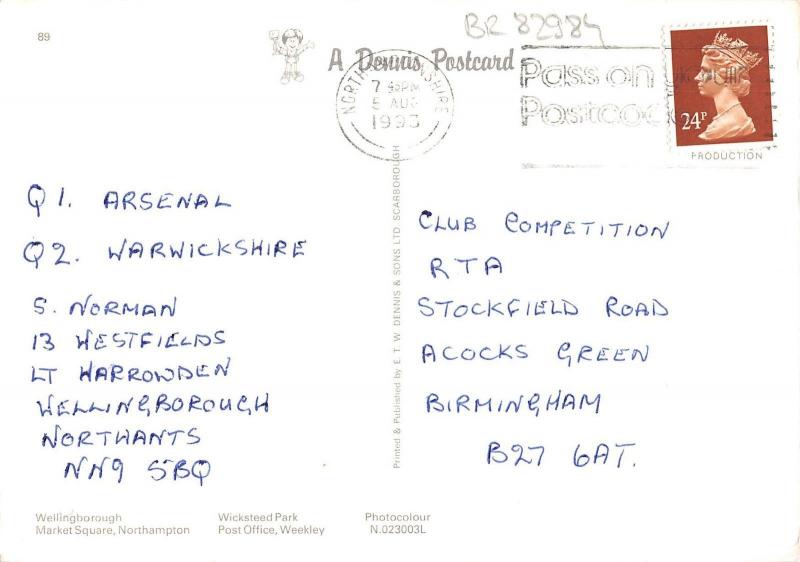 89
BR 82984
A Dennis Postcard
7 PM
5 AUG
1993
Pass on
24P
PRODUCTION
Q1. ARSENAL
Q2. WARWICKSHIRE
S. NORMAN
13 WESTFIELDS
LT HARROWDEN
WELLINGBOROUGH
NORTHANTS
NN9 5BQ
Printed & Published by E. T. W. DENNIS & SONS LTD. SCARBOROUGH
CLUB COMPETITION
RTA
STOCKFIELD ROAD
ACOCKS GREEN
BIRMINGHAM
B27 6AT.
Wellingborough
Market Square, Northampton
Wicksteed Park
Post Office, Weekley
Photocolour
N.023003L